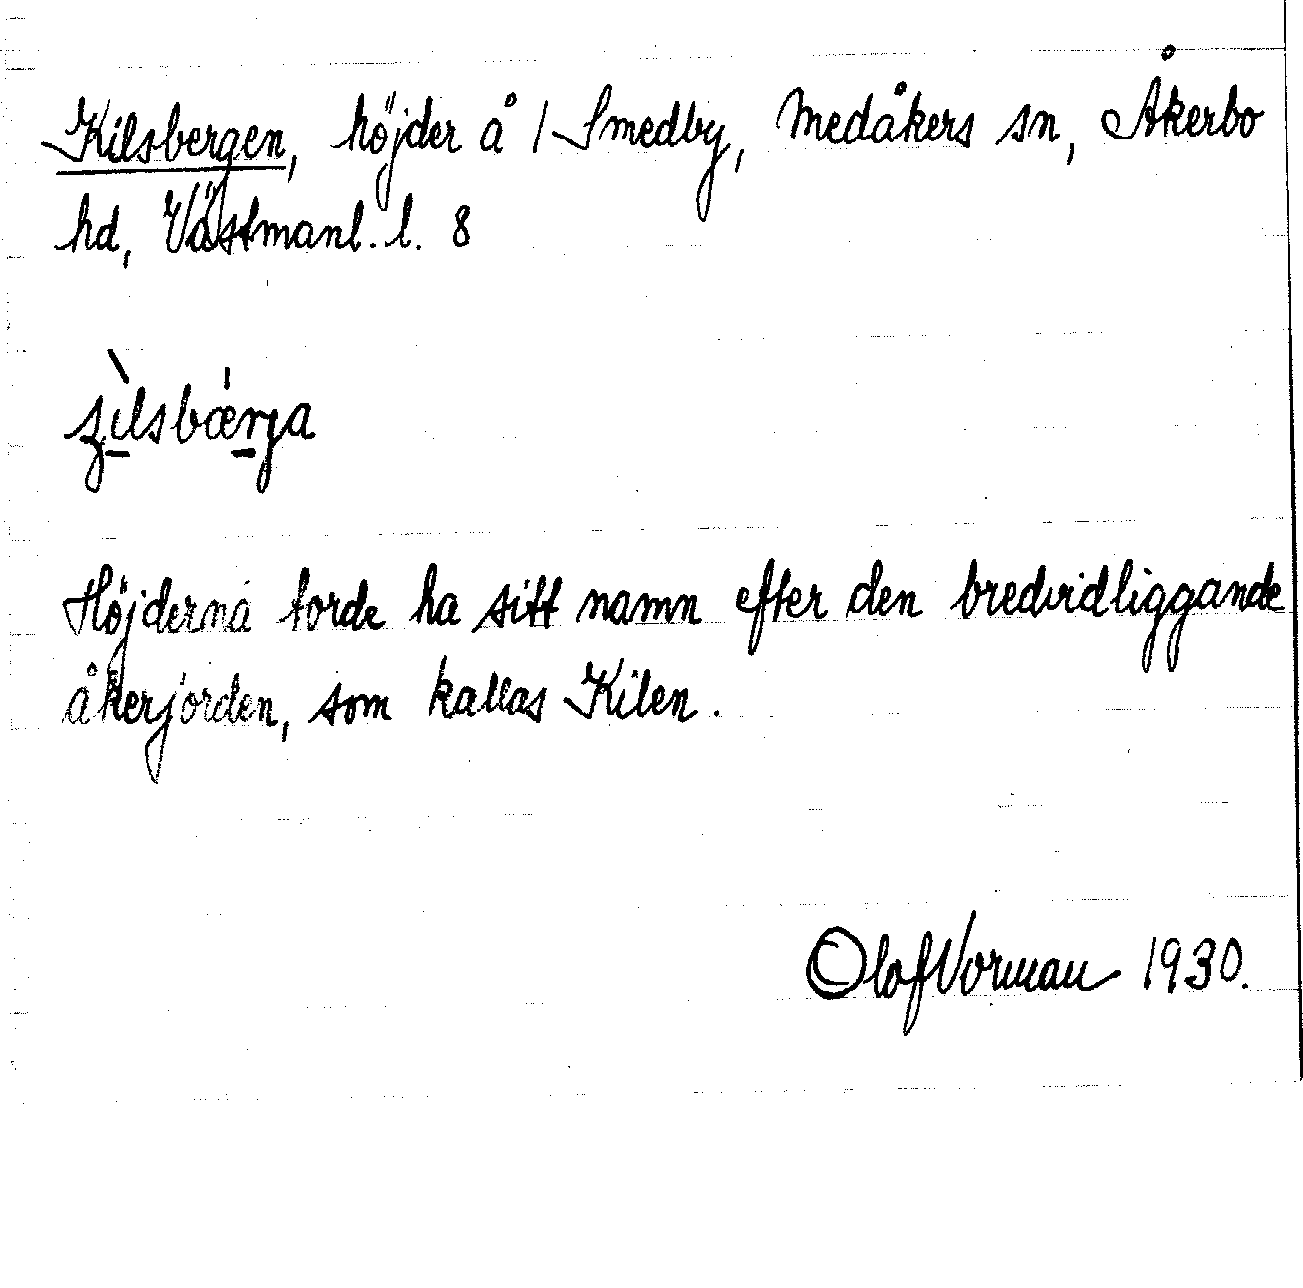 Kilsbergen, höjder å 1 Smedby, Medåkers sn, Åkerbo
hd, Västmanl. l. 8
ʒìlsbærja
Höjderna torde ha sitt namn efter den bredvidliggande
åkerjorden, som kallas Kilen.
Olof Vorman 1930.